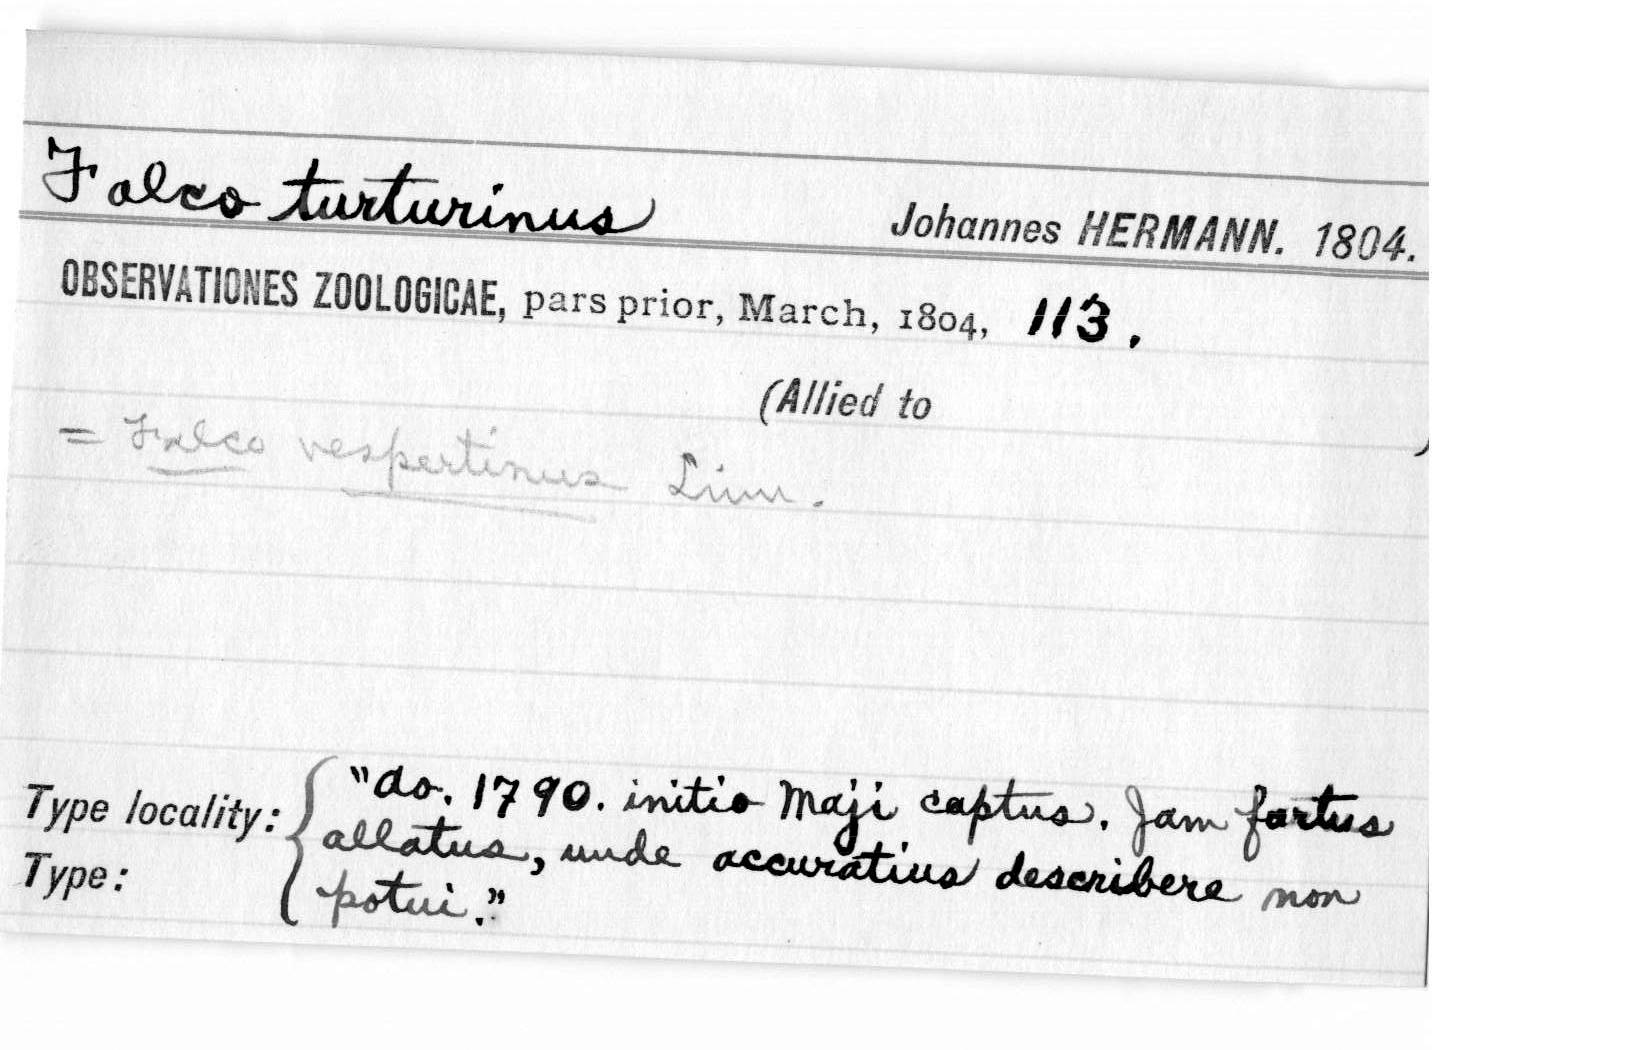 Falco turturinus Johannes HERMANN. 1804.
OBSERVATIONES ZOOLOGICAE, pars prior, March, 1804, 113.
(Allied to )
= Falco vespertinus Linn.
Type locality: { "do. 1790. initio Maji captus. Jam fartus
allatus, unde accuratius describere non
Type: potui."